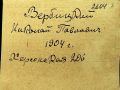 2204
Вербицкий
Николай Павлович
1904 г.
Херсонская 206